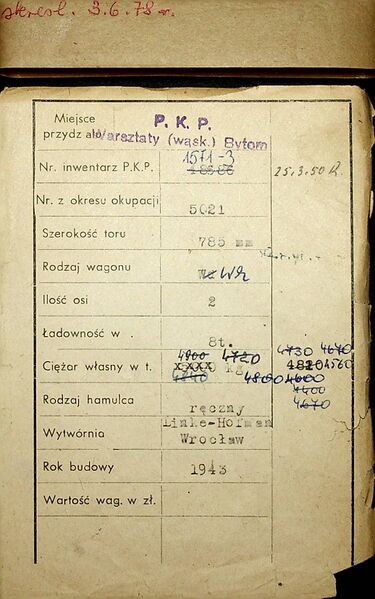 skreśl. 3.6.78 r.
Miejsce
przydziału
P. K. P.
Warsztaty (wąsk.) Bytom
Nr. inwentarz P.K.P.
1571-3
25.3.50 R.
Nr. z okresu okupacji
5021
Szerokość toru
785 mm
Rodzaj wagonu
Wh
Ilość osi
2
Ładowność w .
8t.
Ciężar własny w t.
4900 4720 4730 4670
XXXX kg 4820 4560
4840 4800 4600
4400
4670
Rodzaj hamulca
ręczny
Wytwórnia
Linke-Hofman
Wrocław
Rok budowy
1943
Wartość wag. w zł.